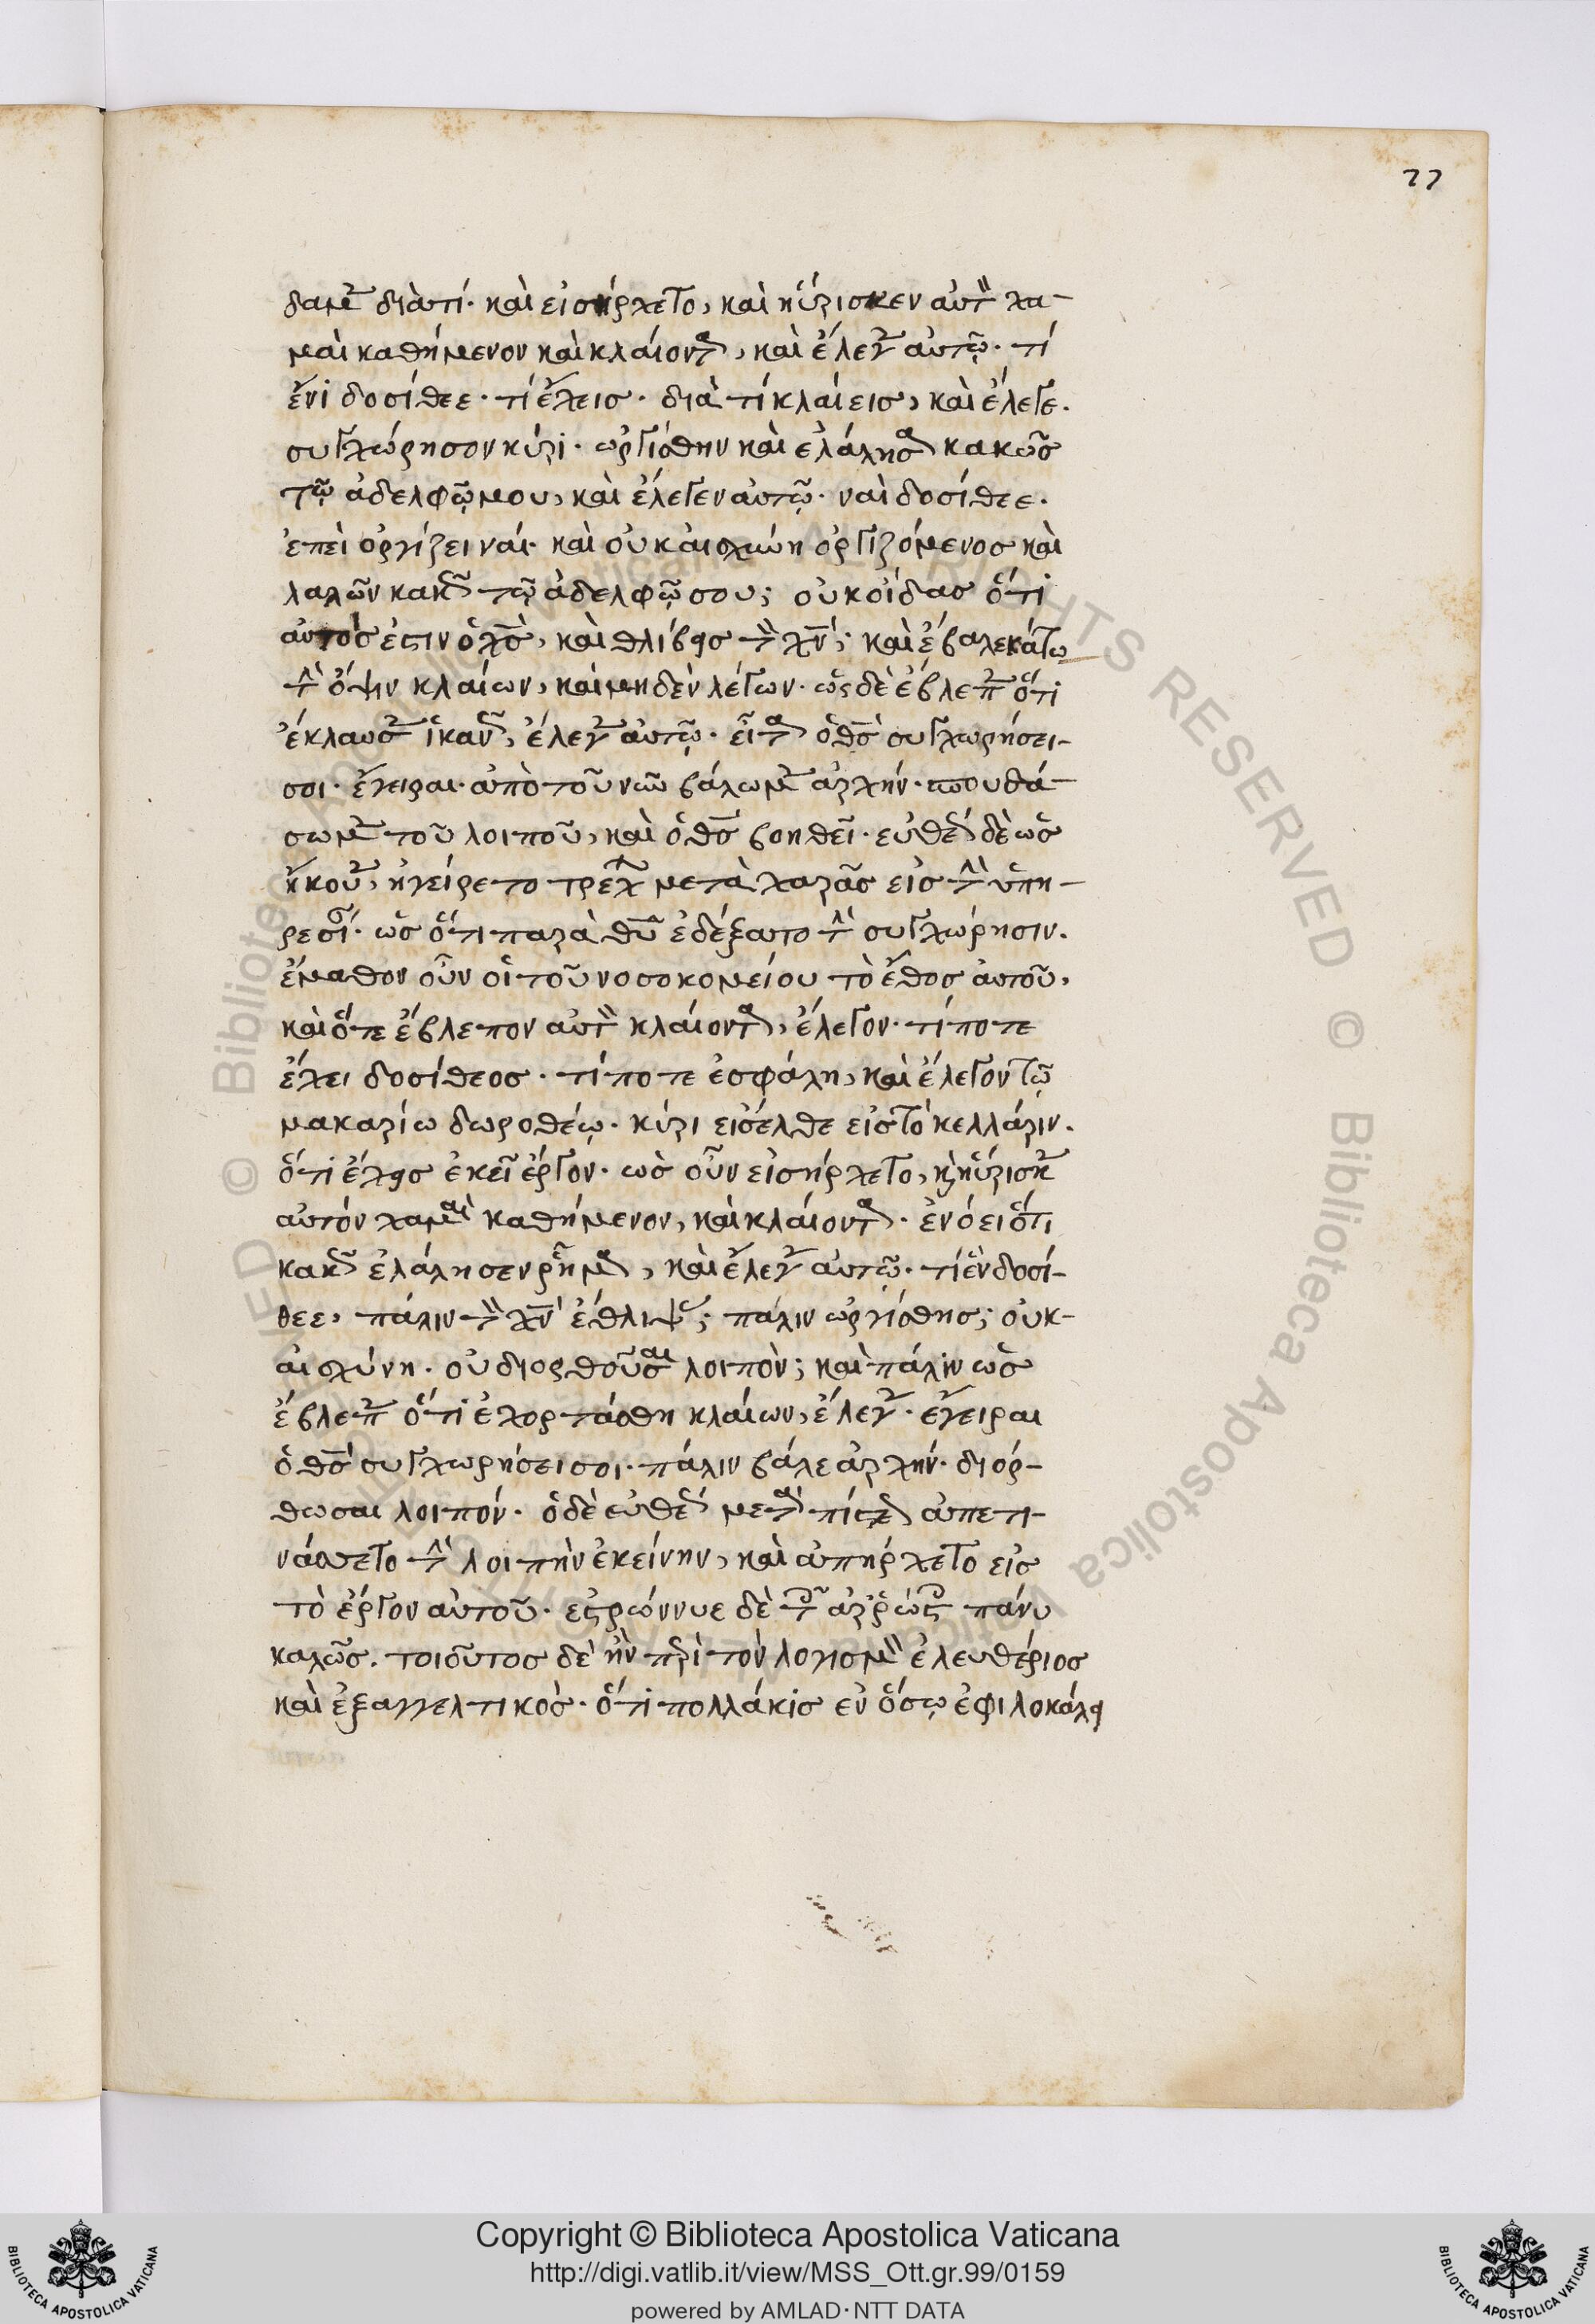 77
δαμεν διατί· καὶ εἰσήρχετο, καὶ ηὕρισκεν αὐτὸν χα-
μαὶ καθήμενον καὶ κλαίοντα, καὶ ἔλεγεν αὐτῷ· τί
ἔνι δοσίθεε· τί ἔχεισ· διὰ τί κλαίεισ, καὶ ἔλεγε.
συγχώρησον κύρι· ὠργίσθην καὶ ἐλάλησα κακῶσ
τῷ ἀδελφῷ μου, καὶ ἔλεγεν αὐτῷ· ναὶ δοσίθεε.
ἐπεὶ ὀργίζει ναί· καὶ οὐκ αἰσχύνη ὀργιζόμενοσ καὶ
λαλῶν κακῶς τῷ ἀδελφῷ σου; οὐκ οἶδασ ὅτι
αὐτόσ ἐστιν ὁ χσ, καὶ θλίβεισ τὸν χν; καὶ ἔβαλε κάτω
τὴν ὄψιν κλαίων, καὶ μηδὲν λέγων· ὡς δὲ ἔβλεπεν ὅτι
ἔκλαυσεν ἱκανῶς, ἔλεγεν αὐτῷ· εἶτα ὁ θσ συγχωρήσει-
σοι· ἔγειραι· ἀπὸ τοῦ νῦν βάλωμεν ἀρχήν· σπουδά-
σωμεν τοῦ λοιποῦ, καὶ ὁ θσ βοηθεῖ· εὐθέως δὲ ὡσ
ἤκουεν, ἠγείρετο τρέχων μετὰ χαρᾶσ εἰσ τὴν ὑπη-
ρεσίαν· ὡσ ὅτι παρὰ θυ ἐδέξατο τὴν συγχώρησιν.
ἔμαθον οὖν οἱ τοῦ νοσοκομείου τὸ ἔθοσ αὐτοῦ,
καὶ ὅτε ἔβλεπον αὐτὸν κλαίοντα, ἔλεγον· τίποτε
ἔχει δοσίθεοσ· τίποτε ἐσφάλη, καὶ ἔλεγον τῷ
μακαρίω δωροθέῳ· κύρι εἰσέλθε εἰσ τὸ κελλάριν.
ὅτι ἔχεισ ἐκεῖ ἔργον· ὡσ οὖν εἰσήρχετο, κ ηὕρισκεν
αὐτόν χαμαὶ καθήμενον, καὶ κλαίοντα· ἐνόει ὅτι
κακῶς ἐλάλησεν ῥῆμα, καὶ ἔλεγεν αὐτῷ· τί ἔν δοσί-
θεε, πάλιν τὸν χν ἔθλιψας; πάλιν ὠργίσθησ; οὐκ-
αἰσχύνη· οὐ διορθοῦσαι λοιπὸν; καὶ πάλιν ὡσ
ἔβλεπεν ὅτι ἐχορτάσθη κλαίων, ἔλεγεν· ἔγειραι
ὁ θσ συγχωρήσει σοι· πάλιν βάλε ἀρχήν· διόρ-
θωσαι λοιπόν· ὁ δὲ εὐθέως μετὰ πίστεως ἀπετι-
νάσσετο τὴν λοιπὴν ἐκείνην, καὶ ἀπήρχετο εἰσ
τὸ ἔργον αὐτοῦ· ἐστρώννυε δὲ τοῖς ἀρρώστοις πάνυ
καλῶσ. τοιοῦτοσ δὲ ἦν περὶ τὸν λογισμὸν ἐλευθέριοσ
καὶ ἐξαγγελτικὸσ· ὅτι πολλάκισ ἐν ὅσῳ ἐφιλοκάλει
Copyright © Biblioteca Apostolica Vaticana
http://digi.vatlib.it/view/MSS_Ott.gr.99/0159
powered by AMLAD·NTT DATA